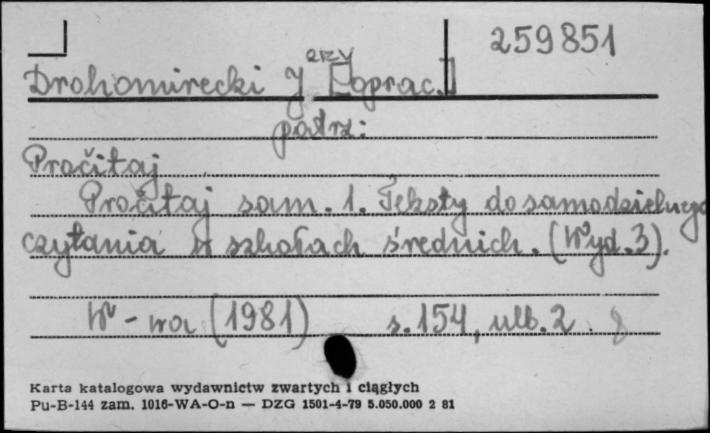 259851
Drohomirecki Jerzy [oprac.]
patrz:
Pročitaj
Pročitaj sam. 1. Teksty do samodzielnego
czytania w szkołach średnich. (Wyd. 3).
W-wa (1981) s. 154, nlb. 2.
Karta katalogowa wydawnictw zwartych i ciągłych
Pu-B-144 zam. 1016-WA-O-n — DZG 1501-4-79 5.050.000 2 81